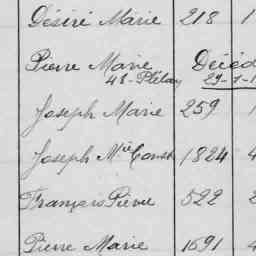 Désiré Marie 218 1
Pierre Marie Décéd
48-Plélan 29-1-1
Joseph Marie 259 1
Joseph Mie Const 1824 4
François Pierre 522 2
Pierre Marie 1691 4